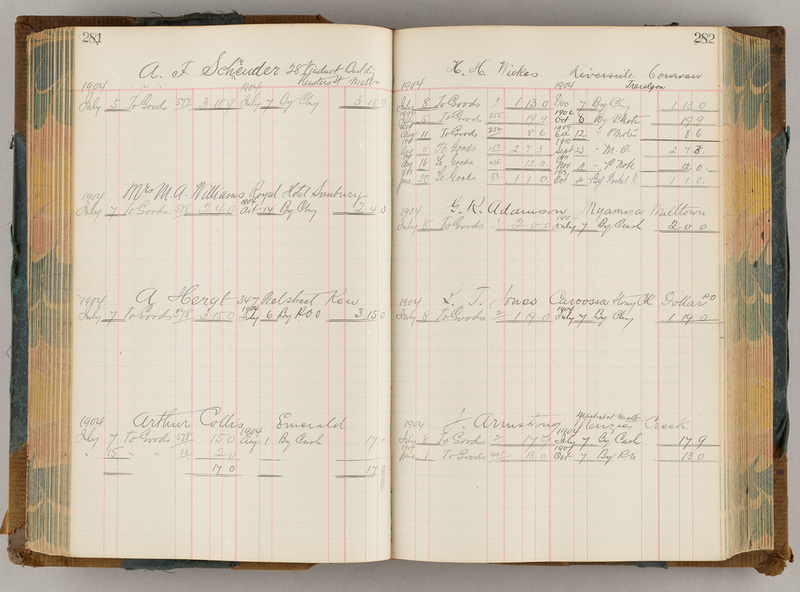 281
A. F. Scheuder 28
1904 1904
July 5 To Goods 577 3 18 9 July 7 By Chq 3 18 9
1904 Mrs M. A. Williams Royal Hotel Sunbury
July 7 To Goods 578 2 4 0 Oct 14 By Chq 2 4 0
1904 A Hergt 347 Kew
July 7 To Goods 578 3 15 0 July 6 By P.O.O 3 15 0
1904 Arthur Collis Emerald
1904
July 7 To Goods 578 15 0 Aug 1 By Cash 17
" 15 " " 13 2 0
17 0 17
282
H. H. Wickes Riverside
1904 1904 Traralgon
July 8 To Goods 1 1 13 0 Dec 7 By Chq 1 13 0
5 To Goods 255 19 9 Oct 8 By 19 9
Aug 11 To Goods 8 6 12 " 8 6
Aug 11 To Goods 2 7 3 Sept 23 " M.O. 2 7 3
Aug 16 To Goods 12 0 Nov 4 " 12 0
June 20 To Goods 83 1 1 0 Oct 4 By 1 1 0
1904 G. R. Adamson Milltown
July 8 To Goods 2 0 0 July 7 By Cash 2 0 0
1904 L. T. Jones Dollar PO
1904
July 8 To Goods 2 1 19 0 July 7 By Chq 1 19 0
1904 J. Armstrong Menzies Creek
1904
July 8 To Goods 2 17 9 July 7 By Cash 17 9
June 1 To Goods 13 0 Oct 7 By 13 0